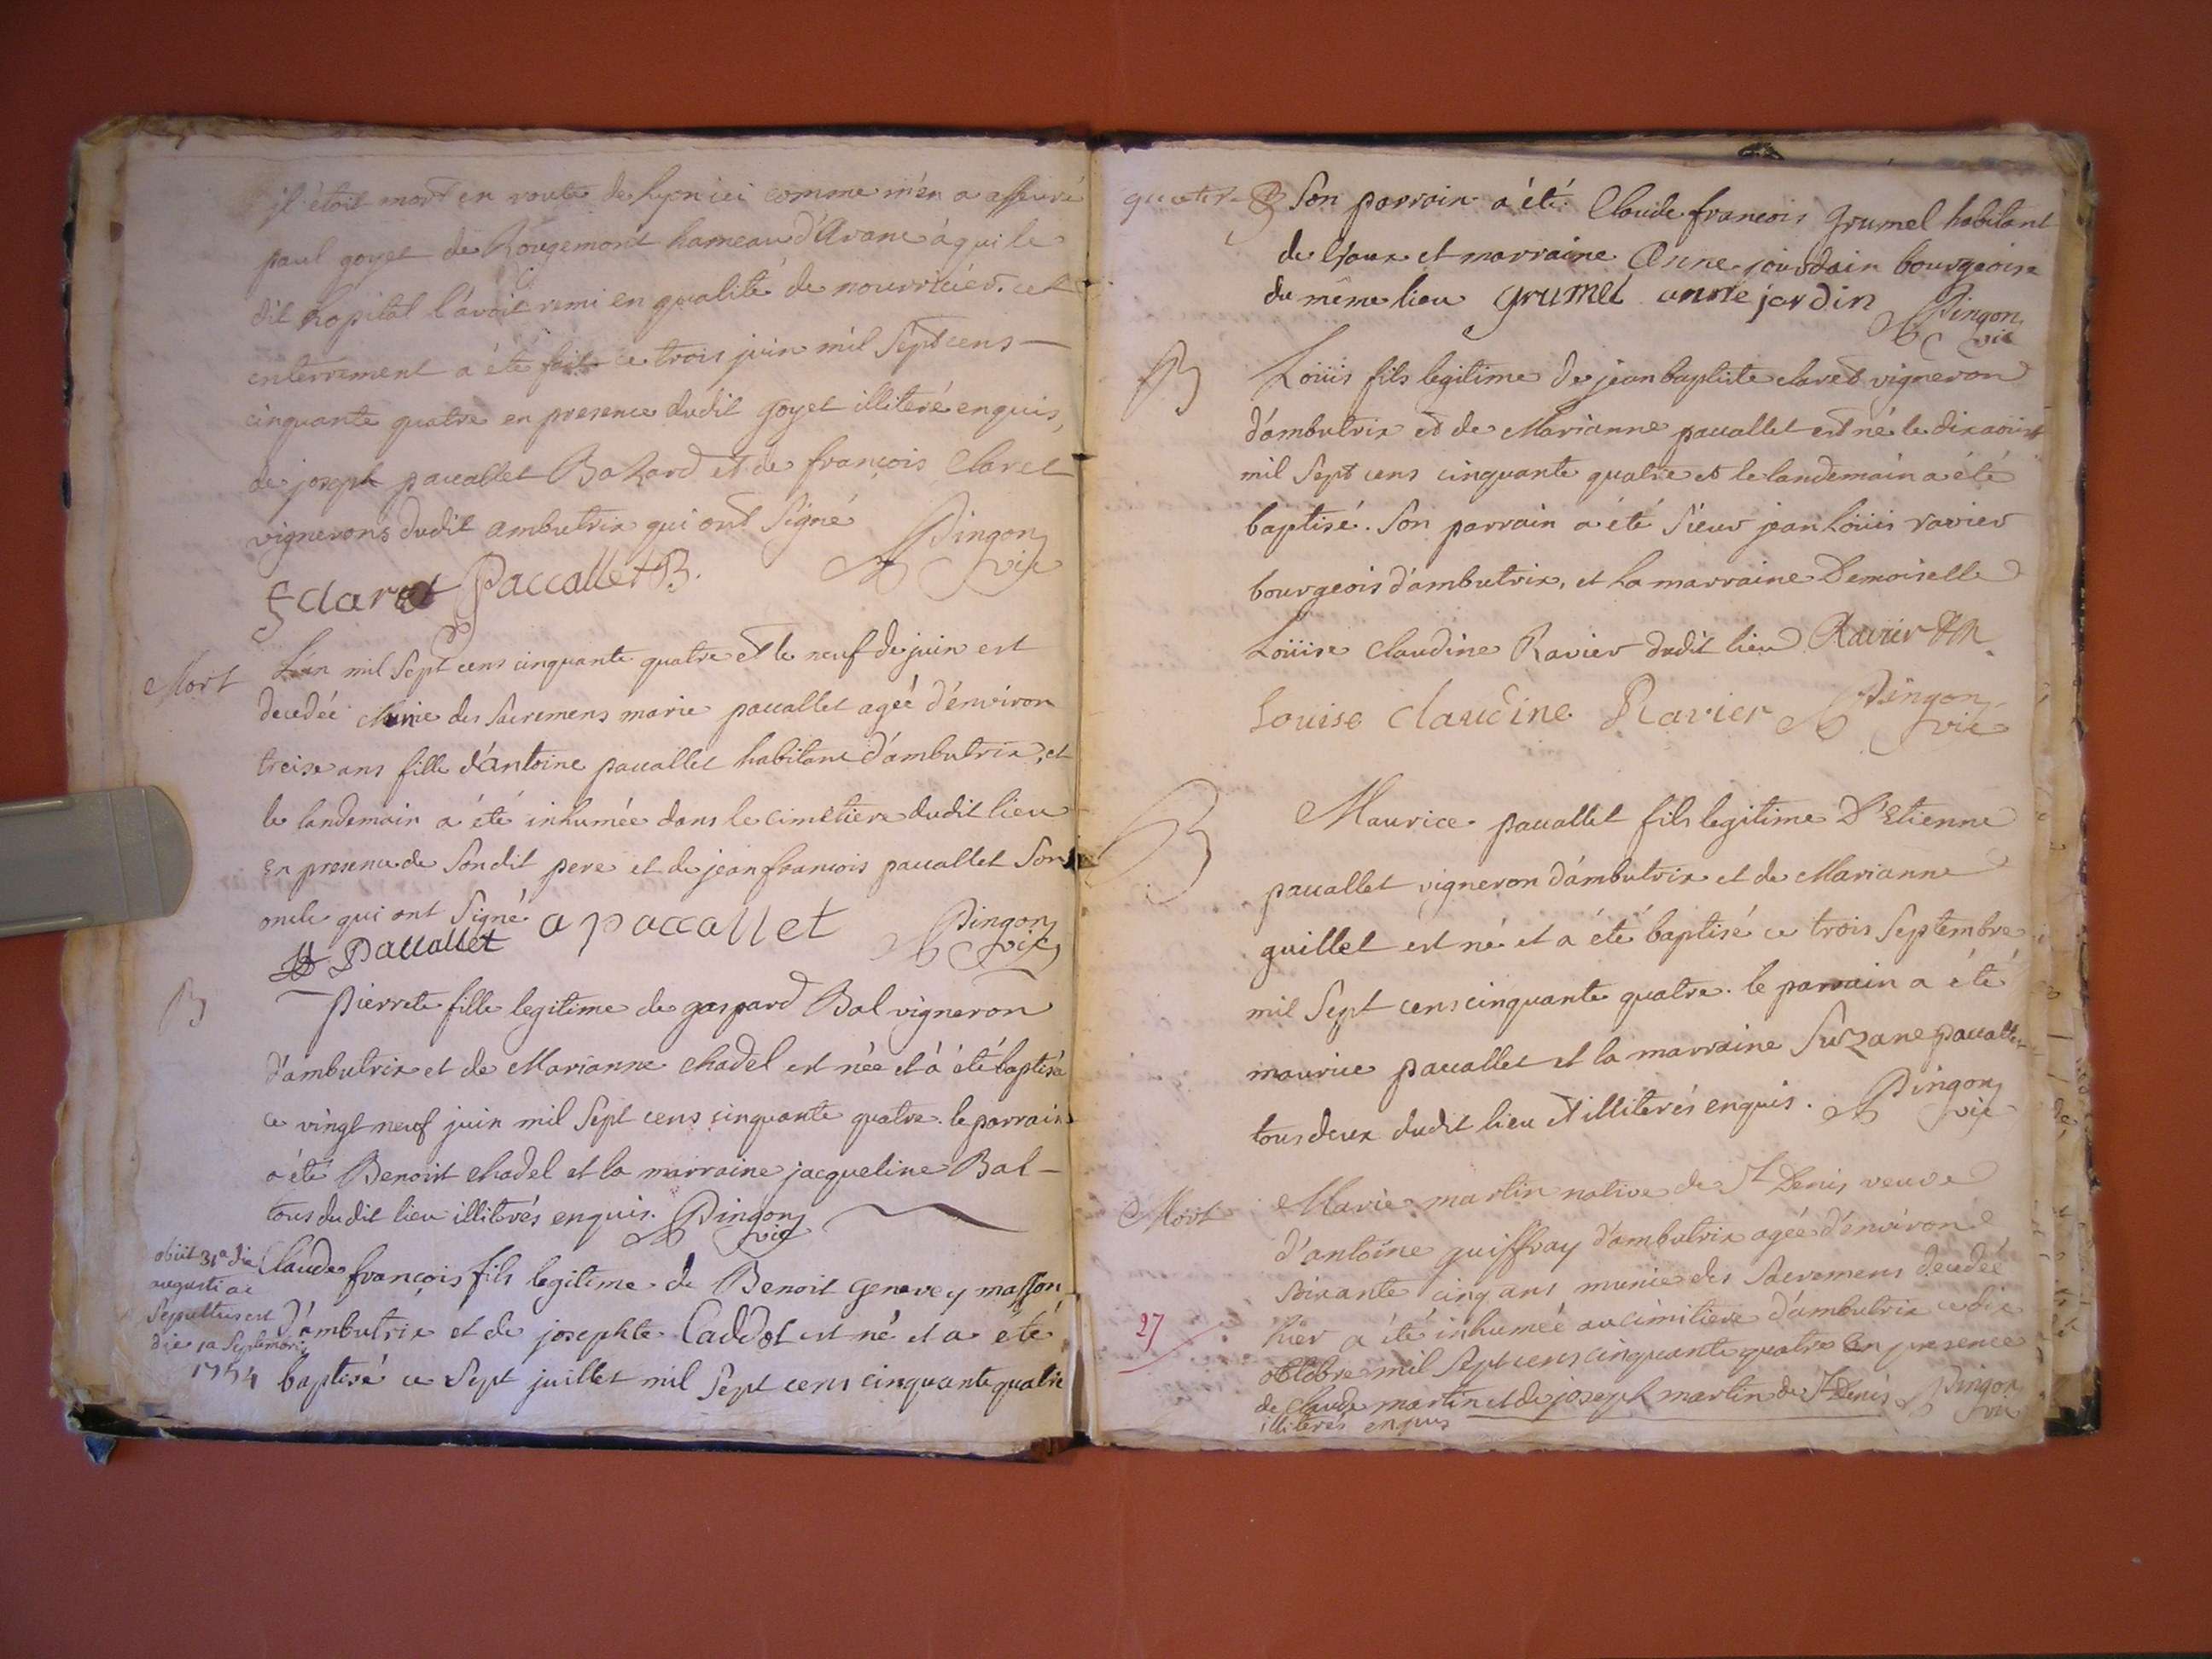 il étoit mort en route de Lyon ici comme m'en a asseuré
paul goyet de Rougemont hameau d'Aranc à qui le
dit hopital l'avoit remi en qualité de nourricier. cet
enterrement a été fait ce trois juin mil sept cens
cinquante quatre en presence dudit goyet illiteré enquis,
de joseph paccallet Bazard et de françois Claret
vignerons dudit ambutrix qui ont signé Pingon
vic
f claret Paccallet B.
Mort L'an mil sept cens cinquante quatre et le neuf de juin est
decedée munie des sacremens marie paccallet ageé d'environ
treise ans fille d'antoine paccallet habitant d'ambutrix, et
le landemain a été inhumée dans le cimetiere dudit lieu
en presence de sondit pere et de jean françois paccallet son
oncle qui ont signé a paccallet Pingon
paccallet vic
B Pierrete fille legitime de gaspard Bal vigneron
d'ambutrix et de Marianne chadel est née et a été baptisée
ce vingt neuf juin mil sept cens cinquante quatre. le parrain
a été Benoit chadel et la marraine jacqueline Bal
tous dudit lieu illiterés enquis. Pingon
vic
obiit 31a die
augusti ac
sepultus est
die 1a septembris
1754
Claude françois fils legitime de Benoit genevey masson
d'ambutrix et de josephte Caddot est né et a été
baptisé ce sept juillet mil sept cens cinquante quatre
quatre. Son parrain a été Claude francois grumel habitant
de l'joux et marraine Anne jourdain bourgeoise
du même lieu grumel anne jordin Pingon
vic
B Loüis fils legitime de jean baptiste claret vigneron
d'ambutrix et de Marianne paccallet est né le dix aoust
mil sept cens cinquante quatre et le landemain a été
baptisé. Son parrain a été sieur jean Loüis ravier
bourgeois d'ambutrix, et la marraine Demoiselle
Loüise claudine Ravier dudit lieu Ravier
Louise claudine Ravier Pingon
vic
B Maurice paccallet fils legitime D'Etienne
paccallet vigneron d'ambutrix et de Marianne
guillet est né et a été baptisé ce trois septembre
mil sept cens cinquante quatre. le parrain a été
maurice paccallet et la marraine Suzane paccallet
tous deux dudit lieu et illiterés enquis. Pingon
vic
Mort Marie martin native de St Denis veuve
d'antoine guiffray d'ambutrix agée d'environ
soixante cinq ans munie des sacremens decedée
27 hier a été inhumée au cimitiere d'ambutrix ce dix
octobre mil sept cens cinquante quatre en presence
de claude martin et de joseph martin de St Denis Pingon
illiterés enquis vic